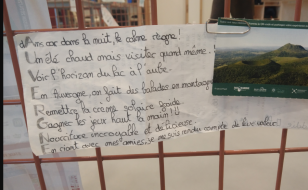 dAns ce dans la nuit, le calme règne!
Un été chaud mais visiter quand même.
Voir l'horizon du lac à l'aube.
En Auvergne, on fait des balades en montagne
Remettez la crème solaire froide.
Gagner les jeux haut la main!
Nourriture incroyable et délicieuse.
En riant avec mes amies, je me suis rendu compte de leur valeur.